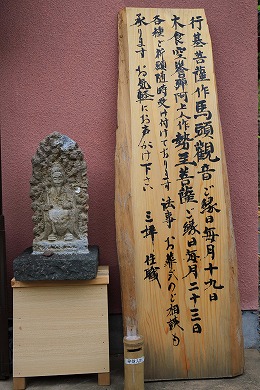 行基菩薩作馬頭觀音ご縁日毎月十九日
木食空誉弾阿上人作勢至菩薩ご縁日毎月二十三日
各種ご祈願随時受け付けております 法事、お葬式のご相談も
承ります お気軽にお声がけ下さい
三拝 住職